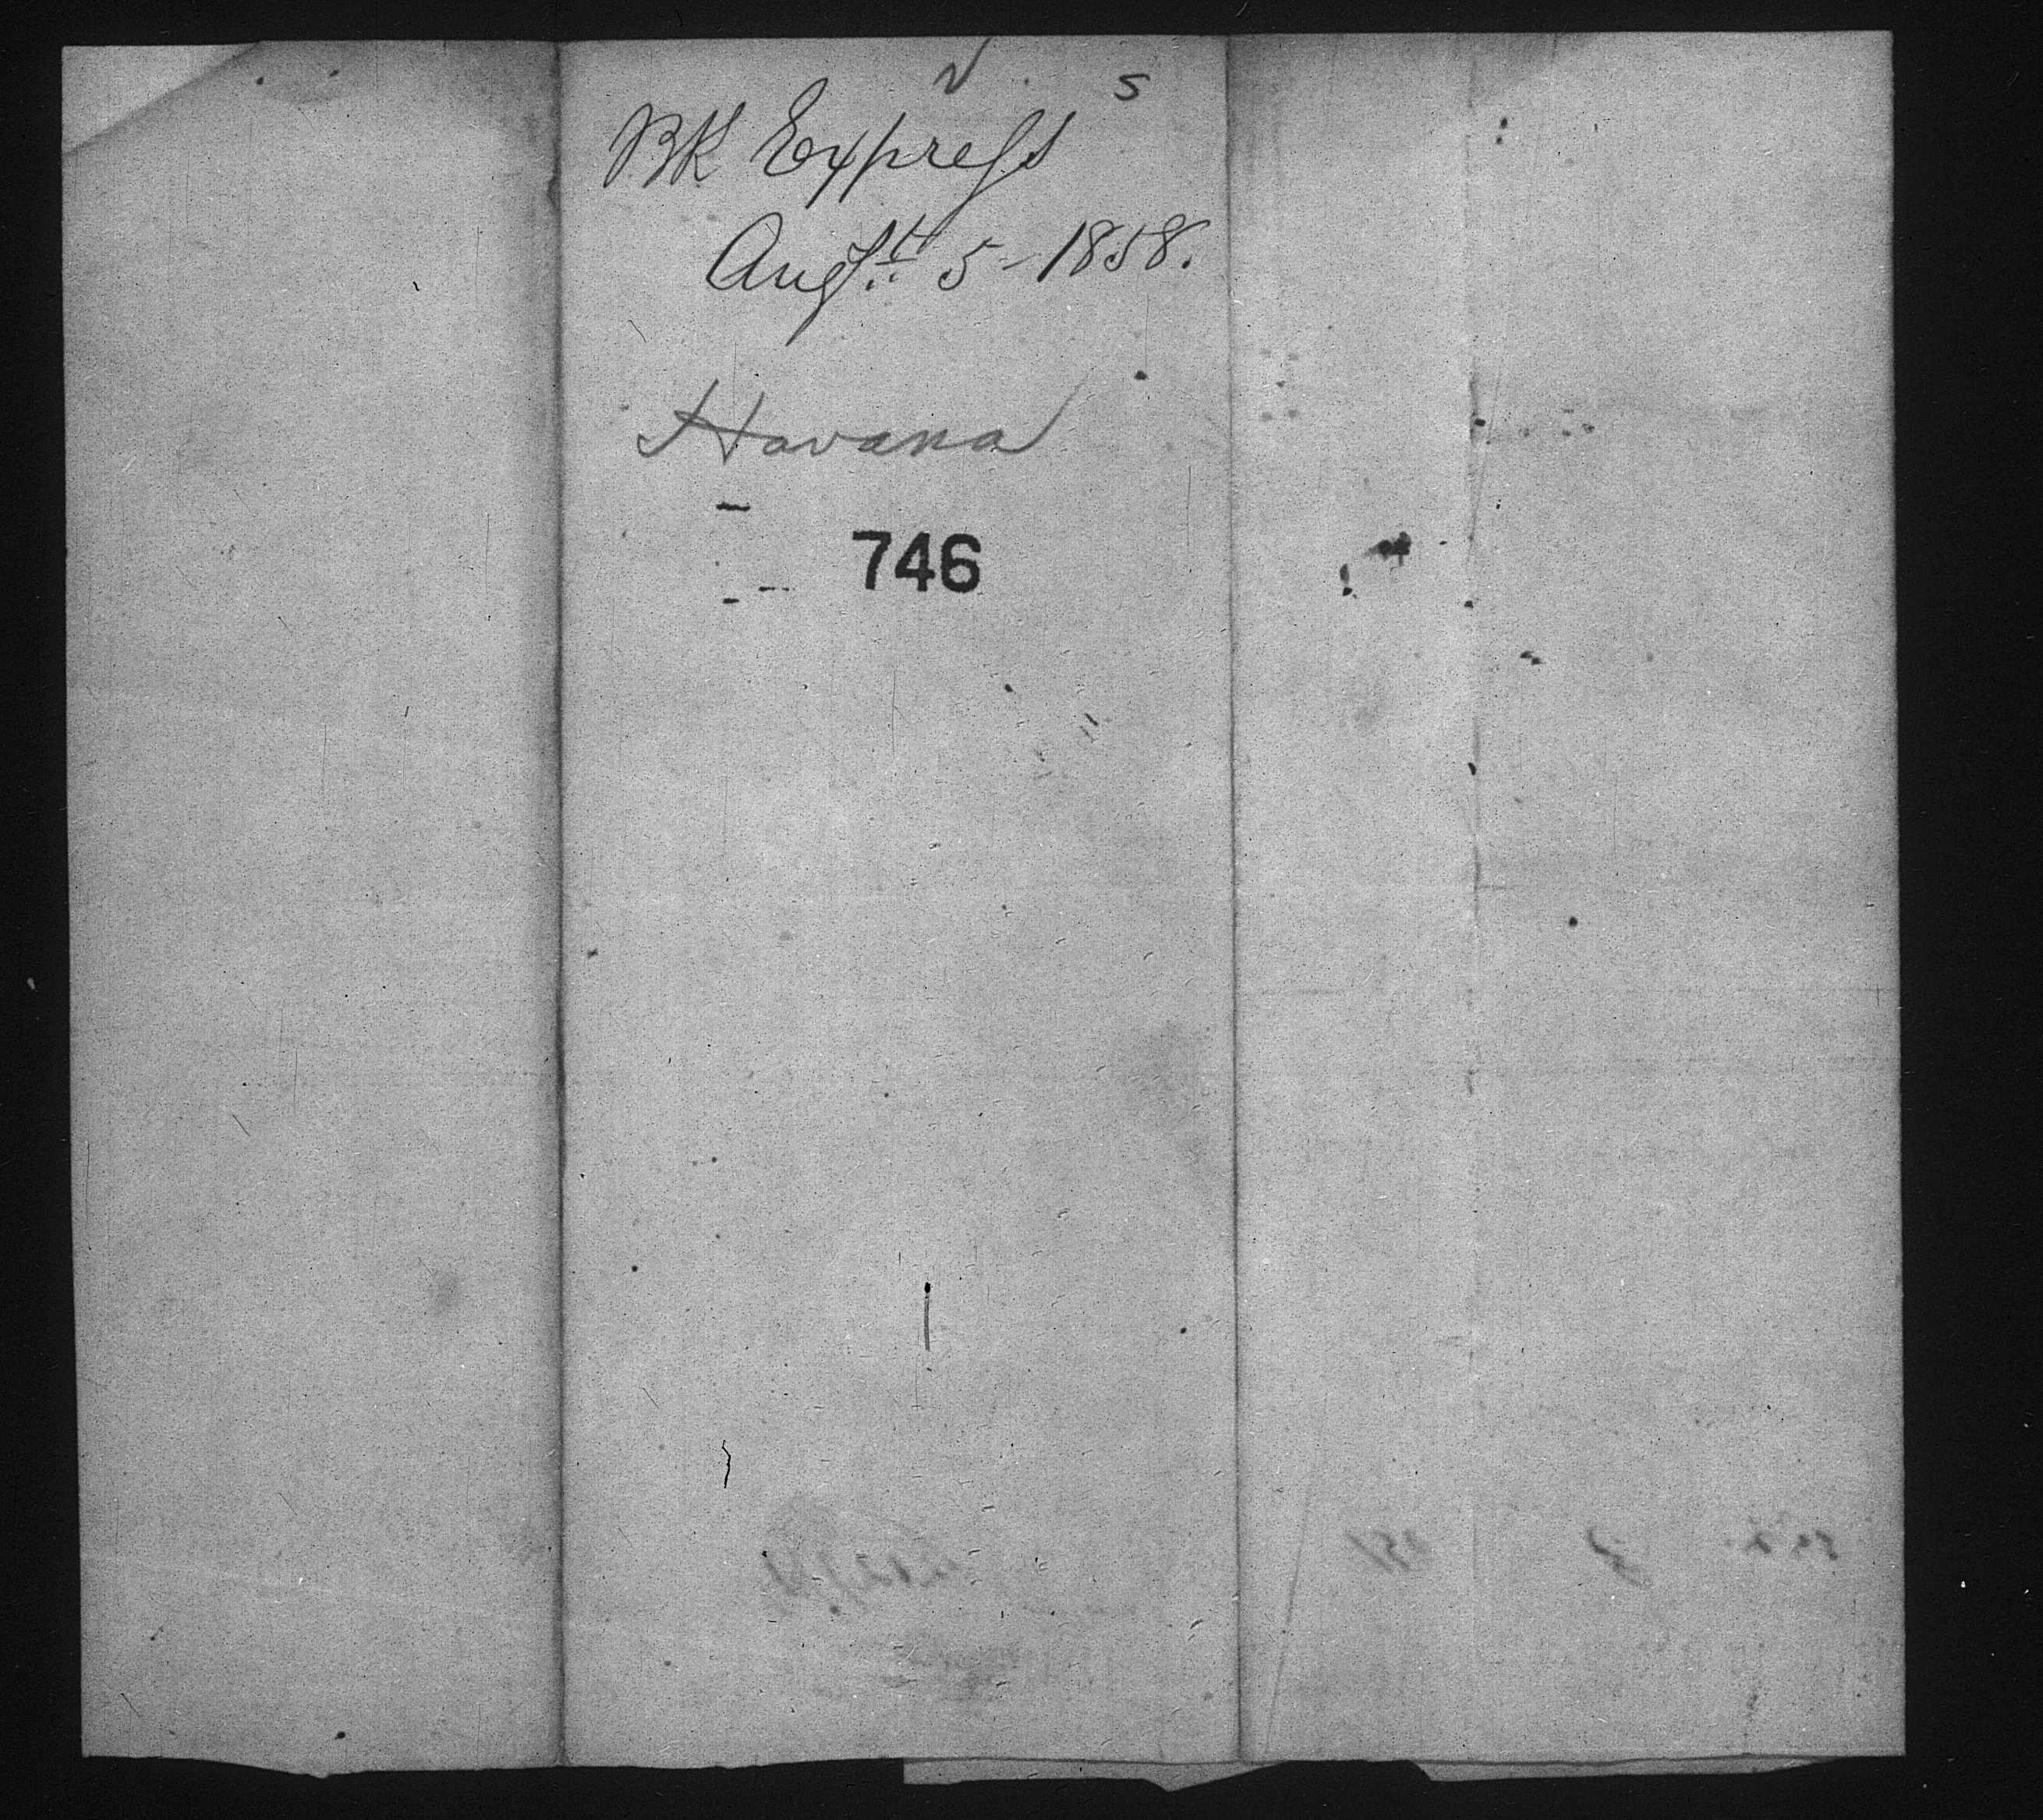 S
BK Express
Augst 5 - 1858.
Havana
746